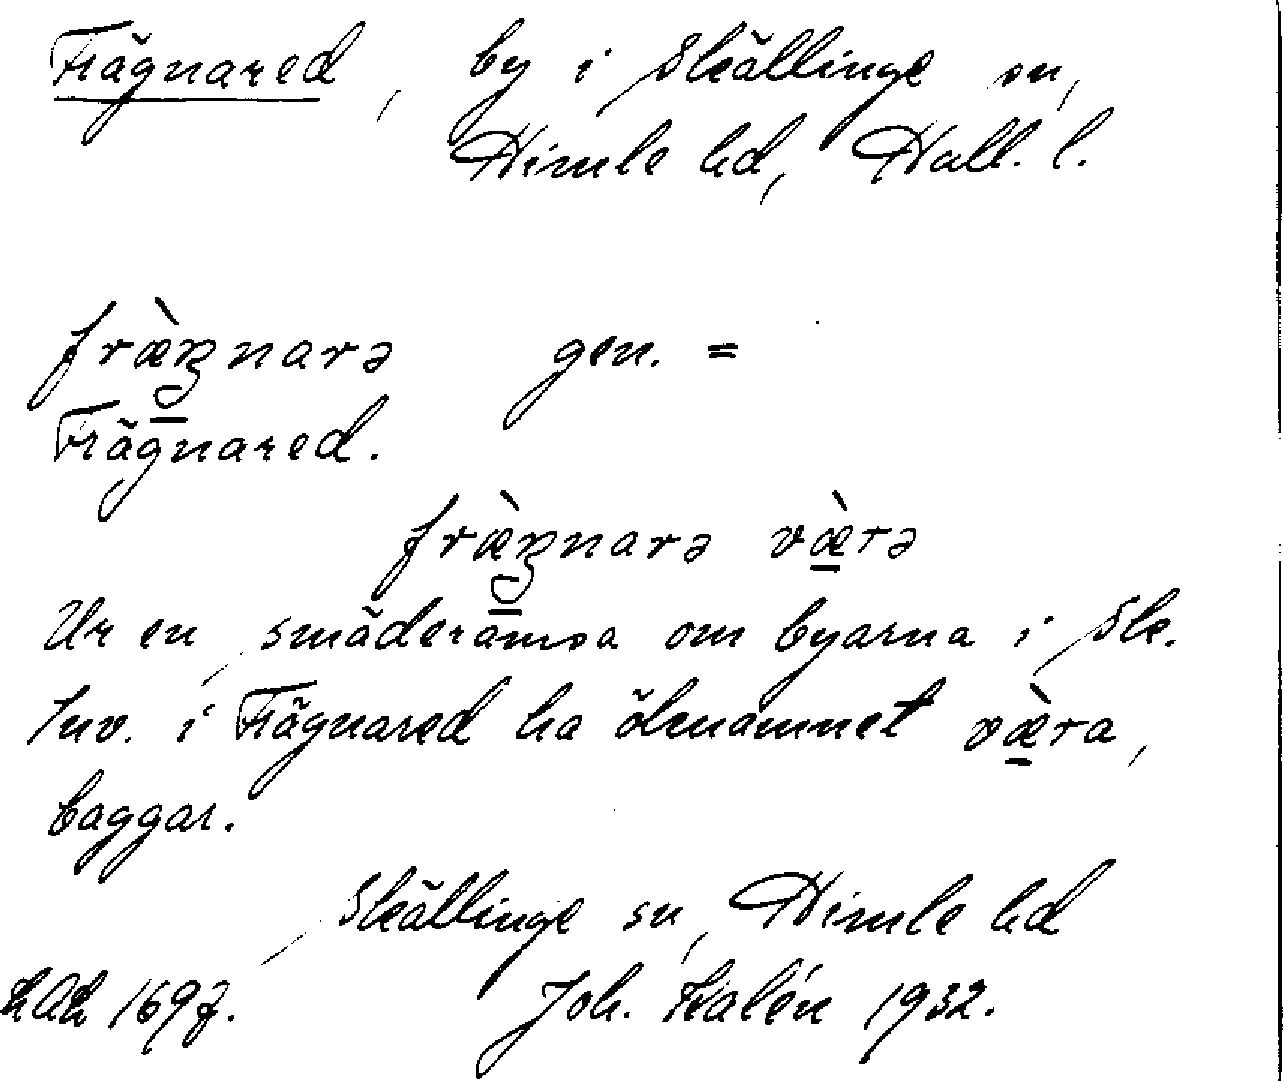 Frägnared, by i Skällinge sn,
Himle hd, Hall. l.
fræ̀ꞃnarə gen. =
Frägnared.
fræ̀ꞃnarə væ̀rə
Ur en smäderamsa om byarna i Sk.
Inv. i Frägnared ha öknamnet væ̀ra,
baggar.
Skällinge sn, Himle hd
1697. Joh. Kalén 1932.